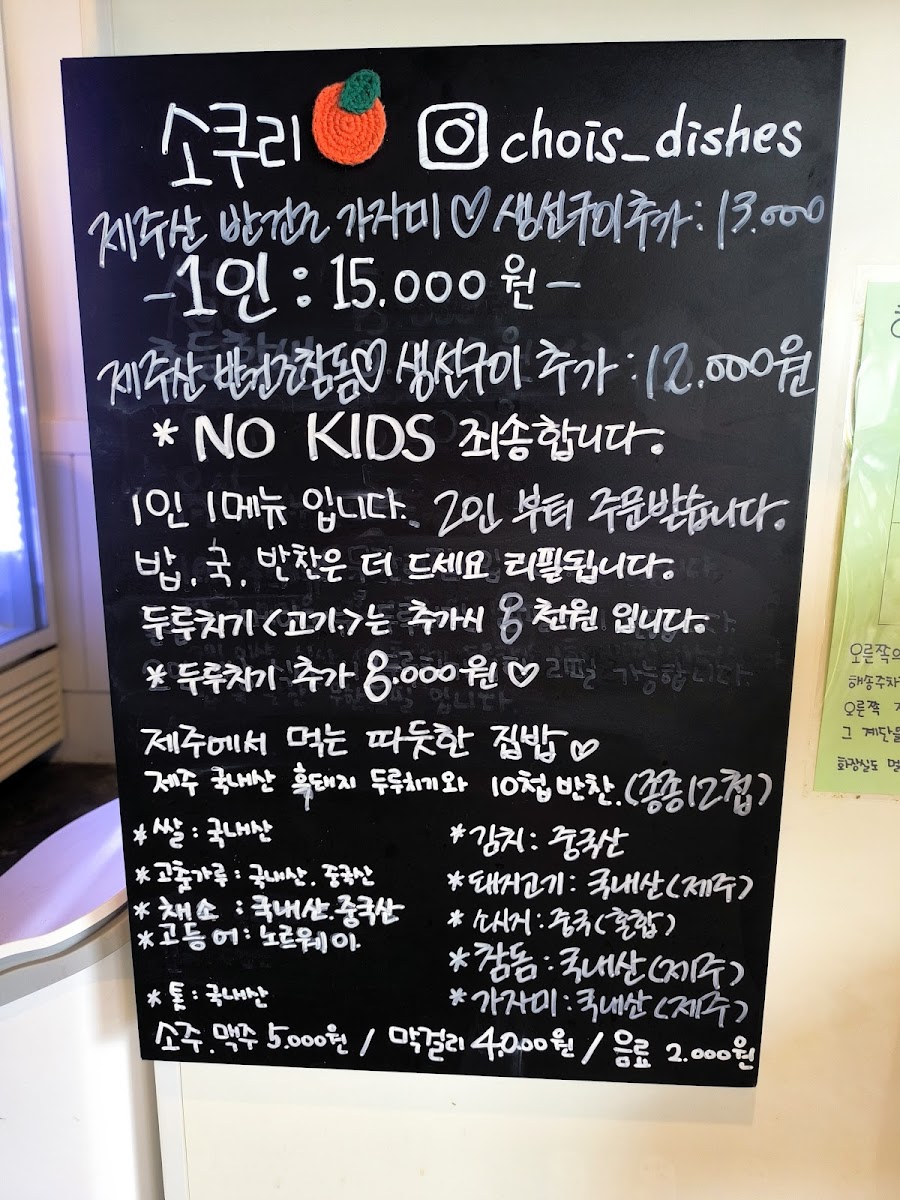 소쿠리 chois_dishes
제주산 반건조 가자미♡ 생선구이추가 : 13.000
-1인 : 15.000원-
제주산 반건조참돔♡ 생선구이 추가 : 12.000원
* NO KIDS 죄송합니다.
1인 1메뉴 입니다. 2인 부터 주문받습니다.
밥. 국. 반찬은 더 드세요 리필됩니다.
두루치기 <고기.>는 추가시 8천원 입니다.
* 두루치기 추가 8.000원♡
제주에서 먹는 따듯한 집밥♡
제주 국내산 흑돼지 두루치기와 10첩반찬.(종종12첩)
* 쌀 : 국내산
* 고춧가루 : 국내산. 중국산
* 채소 : 국내산.중국산
* 고등어 : 노르웨이
* 톳 : 국내산
* 김치 : 중국산
* 돼지고기 : 국내산(제주)
* 소시지 : 중국(혼합)
* 참돔 : 국내산(제주)
* 가자미 : 국내산(제주)
소주.맥주 5.000원 / 막걸리 4.000원 / 음료 2.000원
오른쪽의
해송주차
오른쪽
그 계단을
화장실도